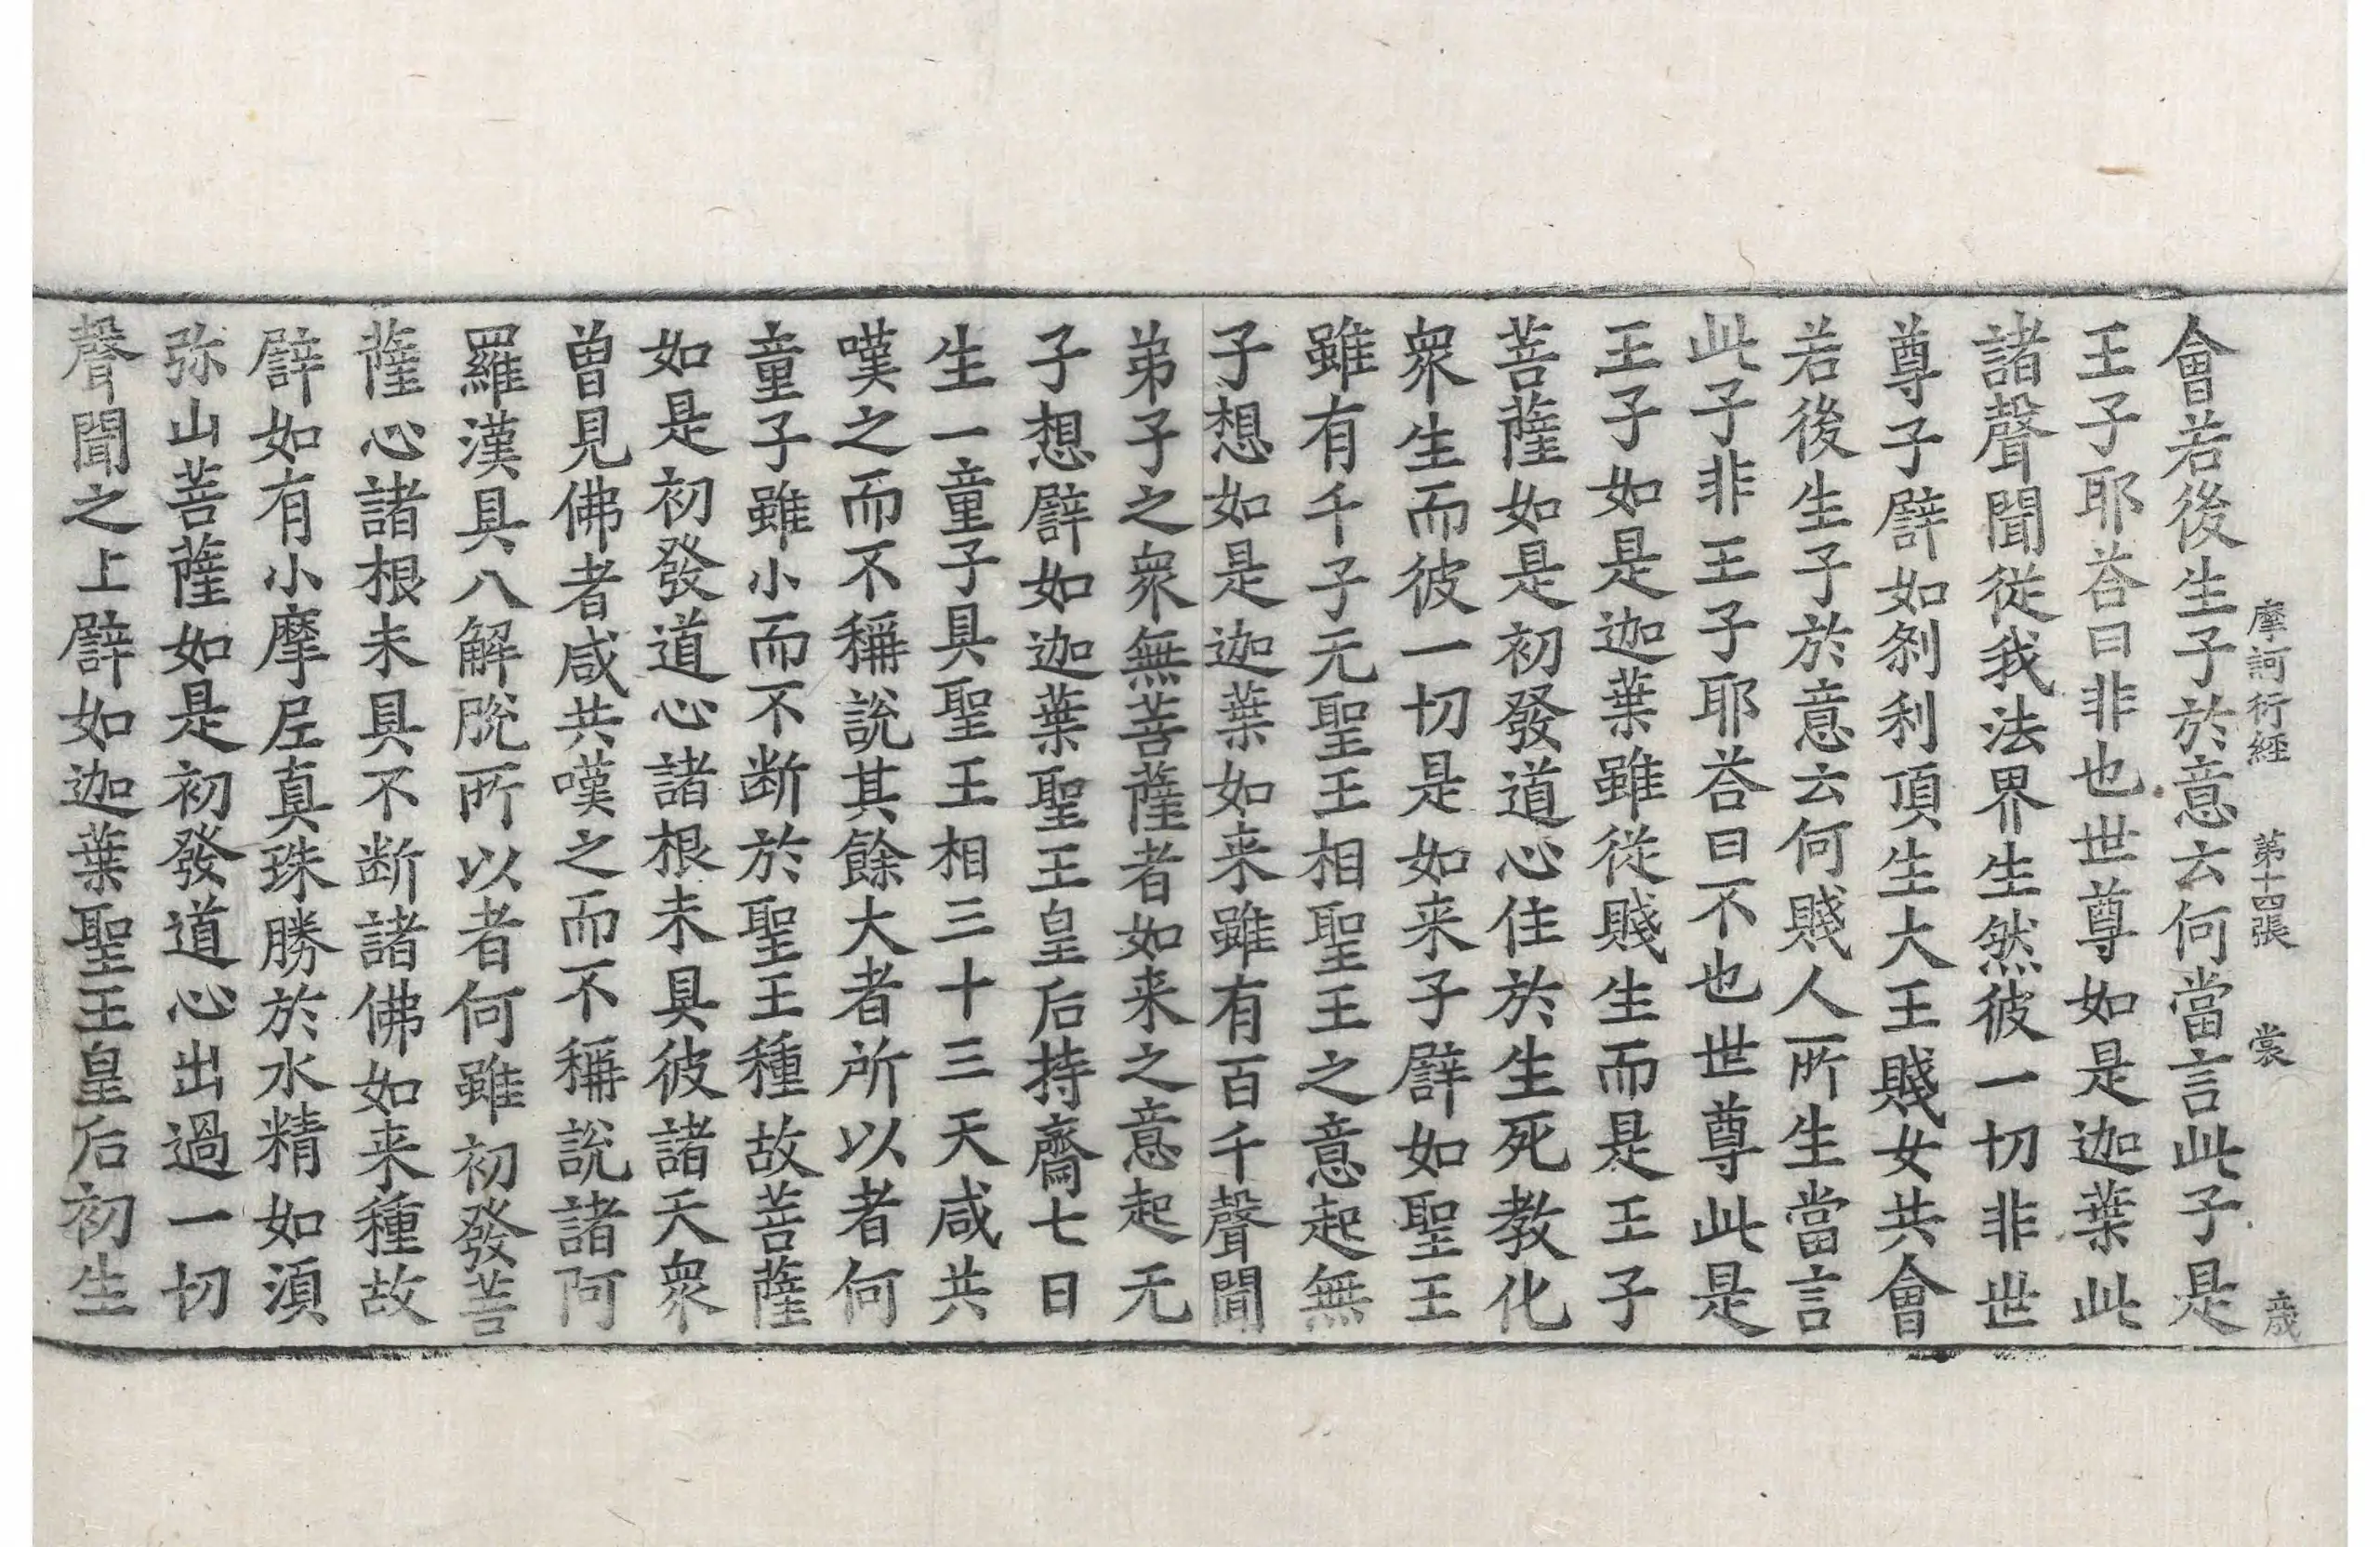 摩訶衍經 第十四張 裳 歲
會若後生子於意云何當言此子是
王子耶荅曰非也世尊如是迦葉此
諸聲聞從我法界生然彼一切非世
尊子譬如剎利頂生大王賤女共會
若後生子於意云何賤人所生當言
此子非王子耶荅曰不也世尊此是
王子如是迦葉雖從賤生而是王子
菩薩如是初發道心住於生死教化
衆生而彼一切是如来子譬如聖王
雖有千子无聖王相聖王之意起無
子想如是迦葉如来雖有百千聲聞
弟子之衆無菩薩者如来之意起无
子想譬如迦葉聖王皇后持齋七日
生一童子具聖王相三十三天咸共
嘆之而不稱說其餘大者所以者何
童子雖小而不断於聖王種故菩薩
如是初發道心諸根未具彼諸天衆
曾見佛者咸共嘆之而不稱說諸阿
羅漢具八解脫所以者何雖初發菩
薩心諸根未具不断諸佛如来種故
譬如有小摩尼真珠勝於水精如湏
弥山菩薩如是初發道心出過一切
聲聞之上譬如迦葉聖王皇后初生